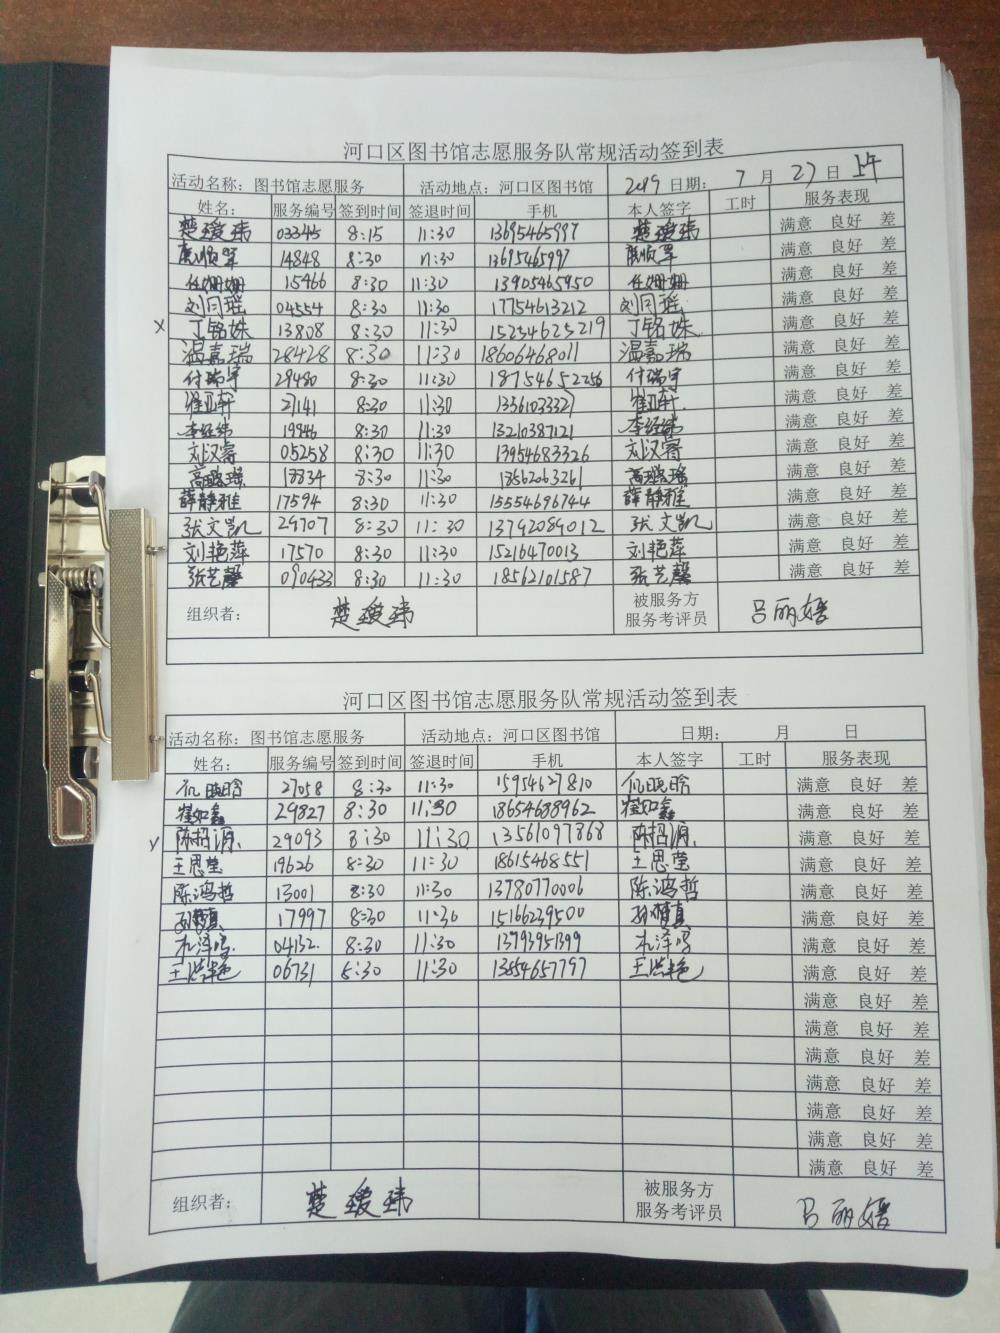 河口区图书馆志愿服务队常规活动签到表
活动名称：图书馆志愿服务 活动地点：河口区图书馆 2019 日期： 7 月 27 日 上午
姓名： 服务编号 签到时间 签退时间 手机 本人签字 工时 服务表现
楚瑷玮 03345 8:15 11:30 13695465997 楚瑷玮 满意 良好 差
14848 8:30 11:30 13695465997 满意 良好 差
任姗姗 15466 8:30 11:30 13905465950 任姗姗 满意 良好 差
刘闫瑶 04554 8:30 11:30 17754613212 刘闫瑶 满意 良好 差
x 丁铭姝 13808 8:30 11:30 15254625219 丁铭姝 满意 良好 差
温嘉瑞 28428 8:30 11:30 18606468011 温嘉瑞 满意 良好 差
付瑞宇 29480 8:30 11:30 18754652256 付瑞宇 满意 良好 差
崔亚轩 27141 8:30 11:30 1336103332 崔亚轩 满意 良好 差
李经纬 19946 8:30 11:30 13210387121 李经纬 满意 良好 差
刘汉睿 05258 8:30 11:30 13954683326 刘汉睿 满意 良好 差
高璐瑶 18834 8:30 11:30 18562063261 高璐瑶 满意 良好 差
薛静雅 17594 8:30 11:30 15554696744 薛静雅 满意 良好 差
张文凯 29707 8:30 11:30 13792089012 张文凯 满意 良好 差
刘艳萍 17570 8:30 11:30 15216470013 刘艳萍 满意 良好 差
张艺馨 090433 8:30 11:30 18562101587 张艺馨 满意 良好 差
组织者： 楚瑷玮 被服务方 服务考评员 吕丽婧
河口区图书馆志愿服务队常规活动签到表
活动名称：图书馆志愿服务 活动地点：河口区图书馆 日期： 月 日
姓名： 服务编号 签到时间 签退时间 手机 本人签字 工时 服务表现
27058 8:30 11:30 15954627810 满意 良好 差
崔如鑫 29827 8:30 11:30 18654688962 崔如鑫 满意 良好 差
y 陈招源 29093 8:30 11:30 13561097868 陈招源 满意 良好 差
王思莹 19626 8:30 11:30 18615468551 王思莹 满意 良好 差
陈鸿哲 13001 8:30 11:30 13780770006 陈鸿哲 满意 良好 差
17997 8:30 11:30 15166239500 满意 良好 差
04132 8:30 11:30 13793951399 满意 良好 差
06731 8:30 11:30 13654657797 满意 良好 差
满意 良好 差
满意 良好 差
满意 良好 差
满意 良好 差
满意 良好 差
满意 良好 差
满意 良好 差
组织者： 楚瑷玮 被服务方 服务考评员 吕丽婧